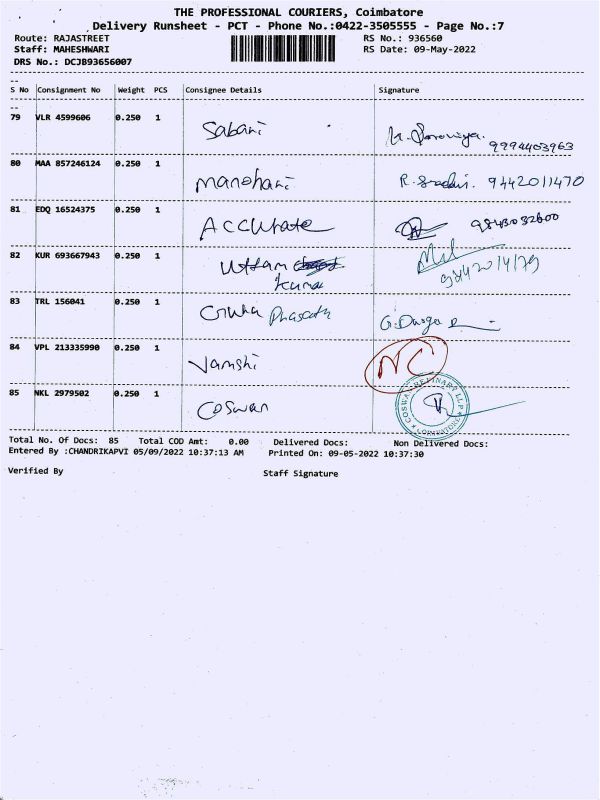 THE PROFESSIONAL COURIERS, Coimbatore
Delivery Runsheet - PCT - Phone No.:0422-3505555 - Page No.:7
Route: RAJASTREET RS No.: 936560
Staff: MAHESHWARI RS Date: 09-May-2022
DRS No.: DCJB93656007
S No Consignment No Weight PCS Consignee Details Signature
79 VLR 4599606 0.250 1 Sabari 9994403963
80 MAA 857246124 0.250 1 Manohari R. 9442011470
81 EDQ 16524375 0.250 1 Accurate 9843032600
82 KUR 693667943 0.250 1 Uttam
Kumar
83 TRL 156041 0.250 1 Guha G. Durga
84 VPL 213335990 0.250 1 Vamshi NC
85 NKL 2979502 0.250 1 Coswan
Total No. Of Docs: 85 Total COD Amt: 0.00 Delivered Docs: Non Delivered Docs:
Entered By :CHANDRIKAPVI 05/09/2022 10:37:13 AM Printed On: 09-05-2022 10:37:30
Verified By Staff Signature